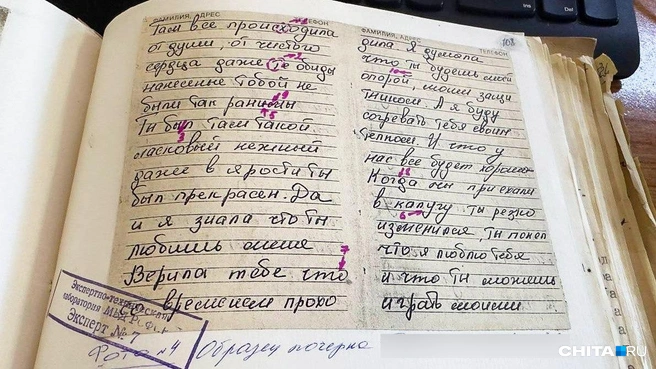 ФАМИЛИЯ, АДРЕС ТЕЛЕФОН
Там все происходила
от души, от чистого
сердца даже те обиды
нанесенные тобой не
были так ранимы
Ты был там такой
ласковый нежный
даже в ярости ты
был прекрасен. Да
и я знала что ты
любишь меня
Верила тебе что
со временем прохо
ФАМИЛИЯ, АДРЕС ТЕЛЕФОН
108
дила Я думала
что ты будешь моей
опорой, моим защи
тником. А я буду
согревать тебя своим
теплом. И что у
нас все будет хорошо
Когда мы приехали
в калугу ты резко
изменился, ты понял
что я люблю тебя
и что ты можешь
играть моими
Экспертно-техническая
лаборатория
Эксперт № 7
Фото №4 Образец почерка
CHITA.RU